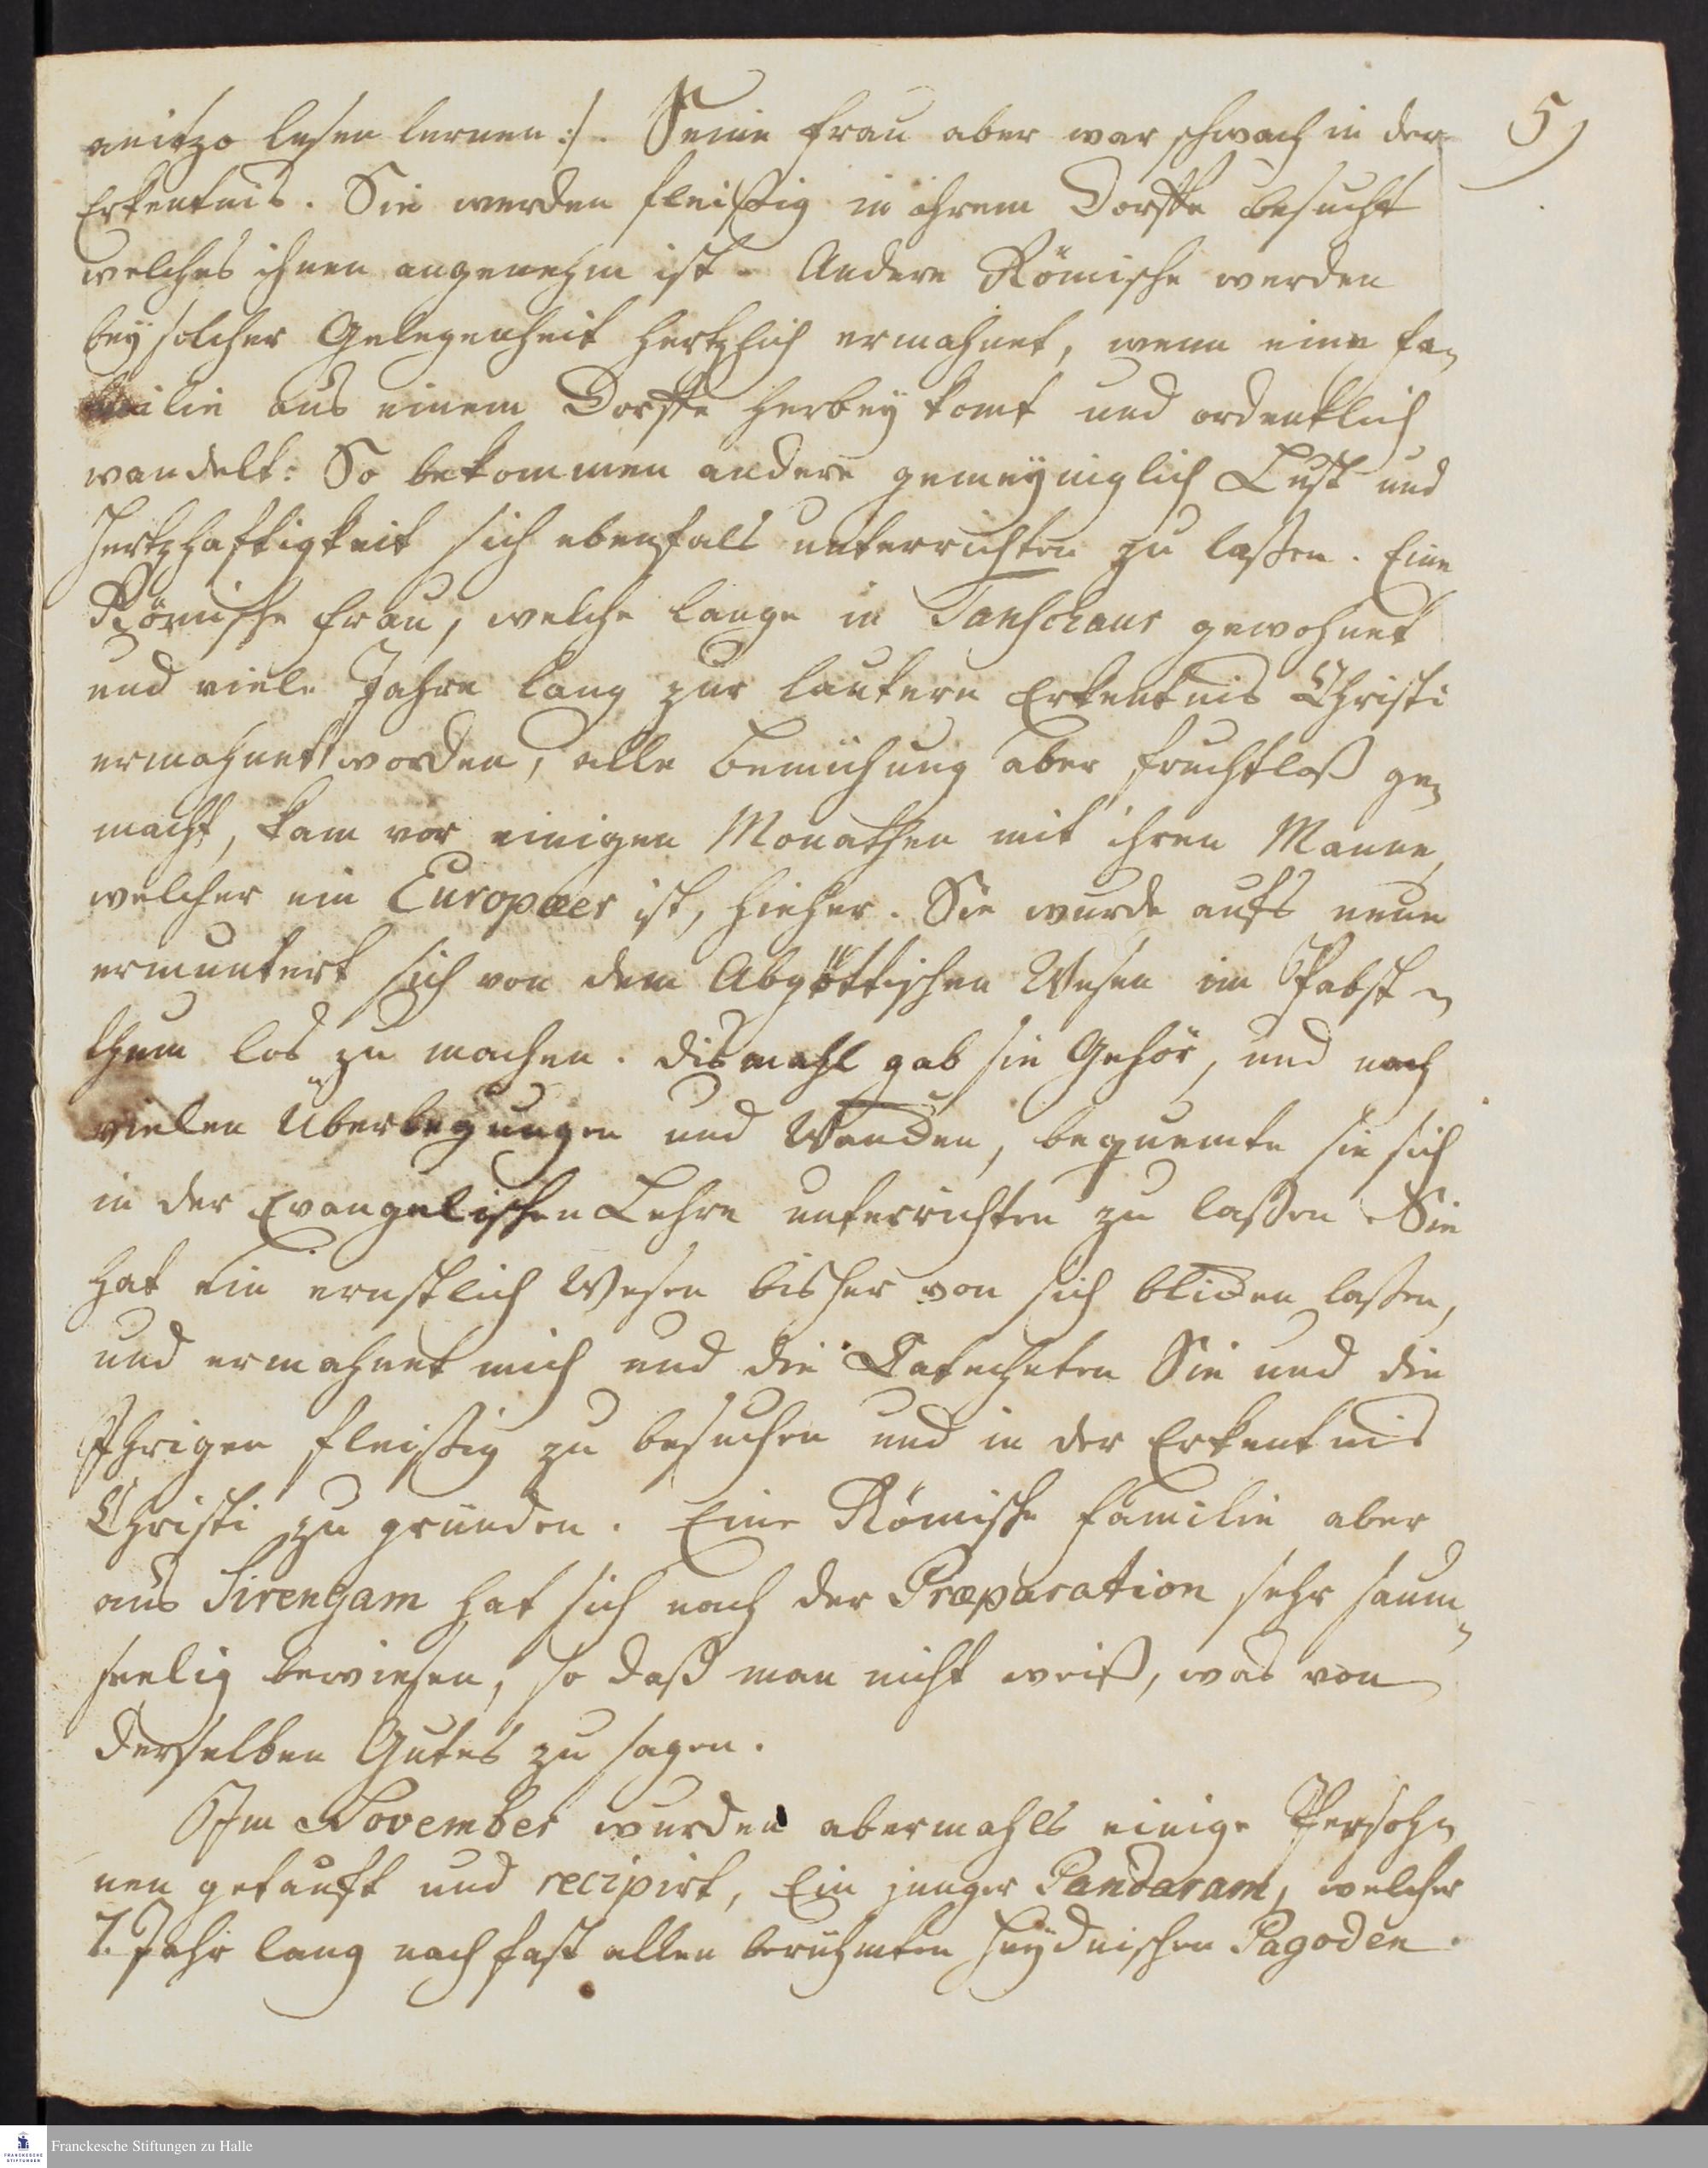 5)
anitzo lesen lernen :/. Seine Frau aber war schwach in der
Erkentnis. Sie werden fleißig in ihrem Dorffe besucht
welches ihnen angenehm ist. Andere Römische werden
bey solcher Gelegenheit hertzlich ermahnet, wenn eine Fa-
milie aus einem Dorffe herbey komt und ordentlich
wandelt: So bekommen andere gemeyniglich Lust und
Hertzhaftigkeit sich ebenfals unterrichten zu laßen. Eine
Römische Frau, welche lange in Tanschaur gewohnet
und viele Jahre lang zur lautern Erkentnis Christi
ermahnet worden, alle Bemühung aber fruchtloß ge-
macht, kam vor einigen Monathen mit ihren Manne,
welcher ein Europæer ist, hieher. Sie wurde aufs neue
ermuntert sich von dem Abgöttischen Wesen im Pabst-
thum los zu machen. Dismahl gab sie Gehör, und nach
vielen Überlegungen und Wancken, bequemte sie sich
in der Evangelischen Lehre unterrichten zu laßen. Sie
hat ein ernstlich Wesen bisher von sich blicken laßen,
und ermahnet mich und die Catecheten Sie und die
Ihrigen fleißig zu besuchen und in der Erkentnis
Christi zu gründen. Eine Römische Familie aber
aus Sirengam hat sich nach der Præparation sehr saum-
seelig bewiesen, so daß man nicht weiß, was von
derselben Gutes zu sagen.
Im November wurden abermahls einige Persoh-
nen getauft und recipirt, Ein junger Pandaram, welcher
7. Jahr lang nach fast allen berühmten Heydnischen Pagoden
Franckesche Stiftungen zu Halle
FRANCKESCHE
STIFTUNGEN